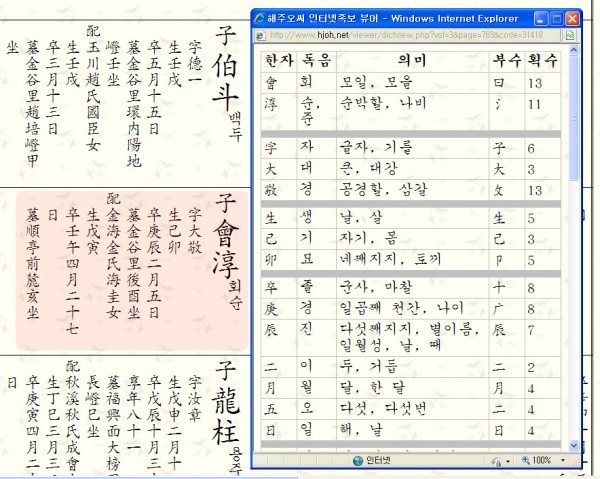 子伯斗 백두
字德一
生壬戌
卒五月十五日
墓金谷里環內陽地
嶝壬坐
配玉川趙氏國臣女
生壬戌
卒三月十三日
墓金谷里趙培嶝甲
坐
子會淳 회순
字大敬
生己卯
卒庚辰二月五日
墓金谷里後酉坐
配金海金氏海圭女
生戊寅
卒壬午四月二十七
日
墓順亭前麓亥坐
子龍柱 용주
字汝章
生戊申二月十
卒戊辰十月三
享年八十一
墓福興面大榜
長嶝巳坐
配秋溪秋氏成會
生丁巳三月三
卒庚寅四月二十
日
해주오씨 인터넷족보 뷰어 - Windows Internet Explorer
http://www.hjoh.net/viewer/dictview.php?vol=3&page=783&code=31418
한자 독음 의미 부수 획수
會 회 모일, 모을 曰 13
淳 순, 준 순박할, 나비 氵 11
字 자 글자, 기를 子 6
大 대 큰, 대강 大 3
敬 경 공경할, 삼갈 攵 13
生 생 날, 살 生 5
己 기 자기, 몸 己 3
卯 묘 네째지지, 토끼 卩 5
卒 졸 군사, 마칠 十 8
庚 경 일곱째 천간, 나이 广 8
辰 진 다섯째지지, 별이름, 辰 7
일월성, 날, 때
二 이 두, 거듭 二 2
月 월 달, 한 달 月 4
五 오 다섯, 다섯번 二 4
日 일 해, 날 日 4
인터넷
100%